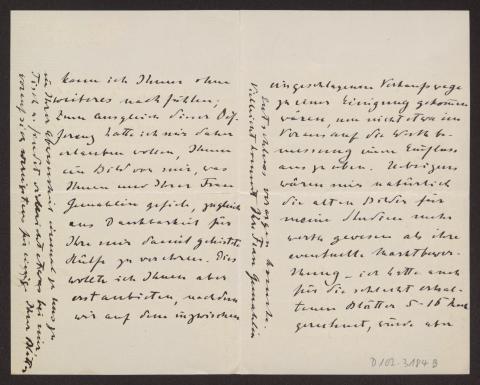 kann ich Ihnen ohne
weiteres nachfühlen;
zum Ausgleich dieser Dif-
ferenz hatte ich mir daher
erlauben wollen, Ihnen
ein Bild von mir, was
Ihnen und Ihrer Frau
Gemahlin gefiele, zugleich
aus Dankbarkeit für
Ihre mir damit geleistete
Hülfe zu verehren. Dies
wollte ich Ihnen aber
erst anbieten, nachdem
wir auf dem inzwischen
eingeschlagenen Verkaufswege
zu einer Einigung gekommen
wären, um nicht etwa im
Voraus auf die Werthbe-
messung einen Einfluss
auszuüben. Uebrigens
wären mir natürlich
die alten Bilder für
meine Studien mehr
werth gewesen als ihre
eventuelle Marktbewer-
thung – ich hatte auch
für die schlecht erhal-
tenen Blätter 5-16 
gerechnet, würde aber
Entschluss vorzugen brauche.
Vielleicht kommt Ihre Frau Gemahlin
zu uns zu
Tisch u. findet vielleicht etwas bei mir
D 102-3.184 B